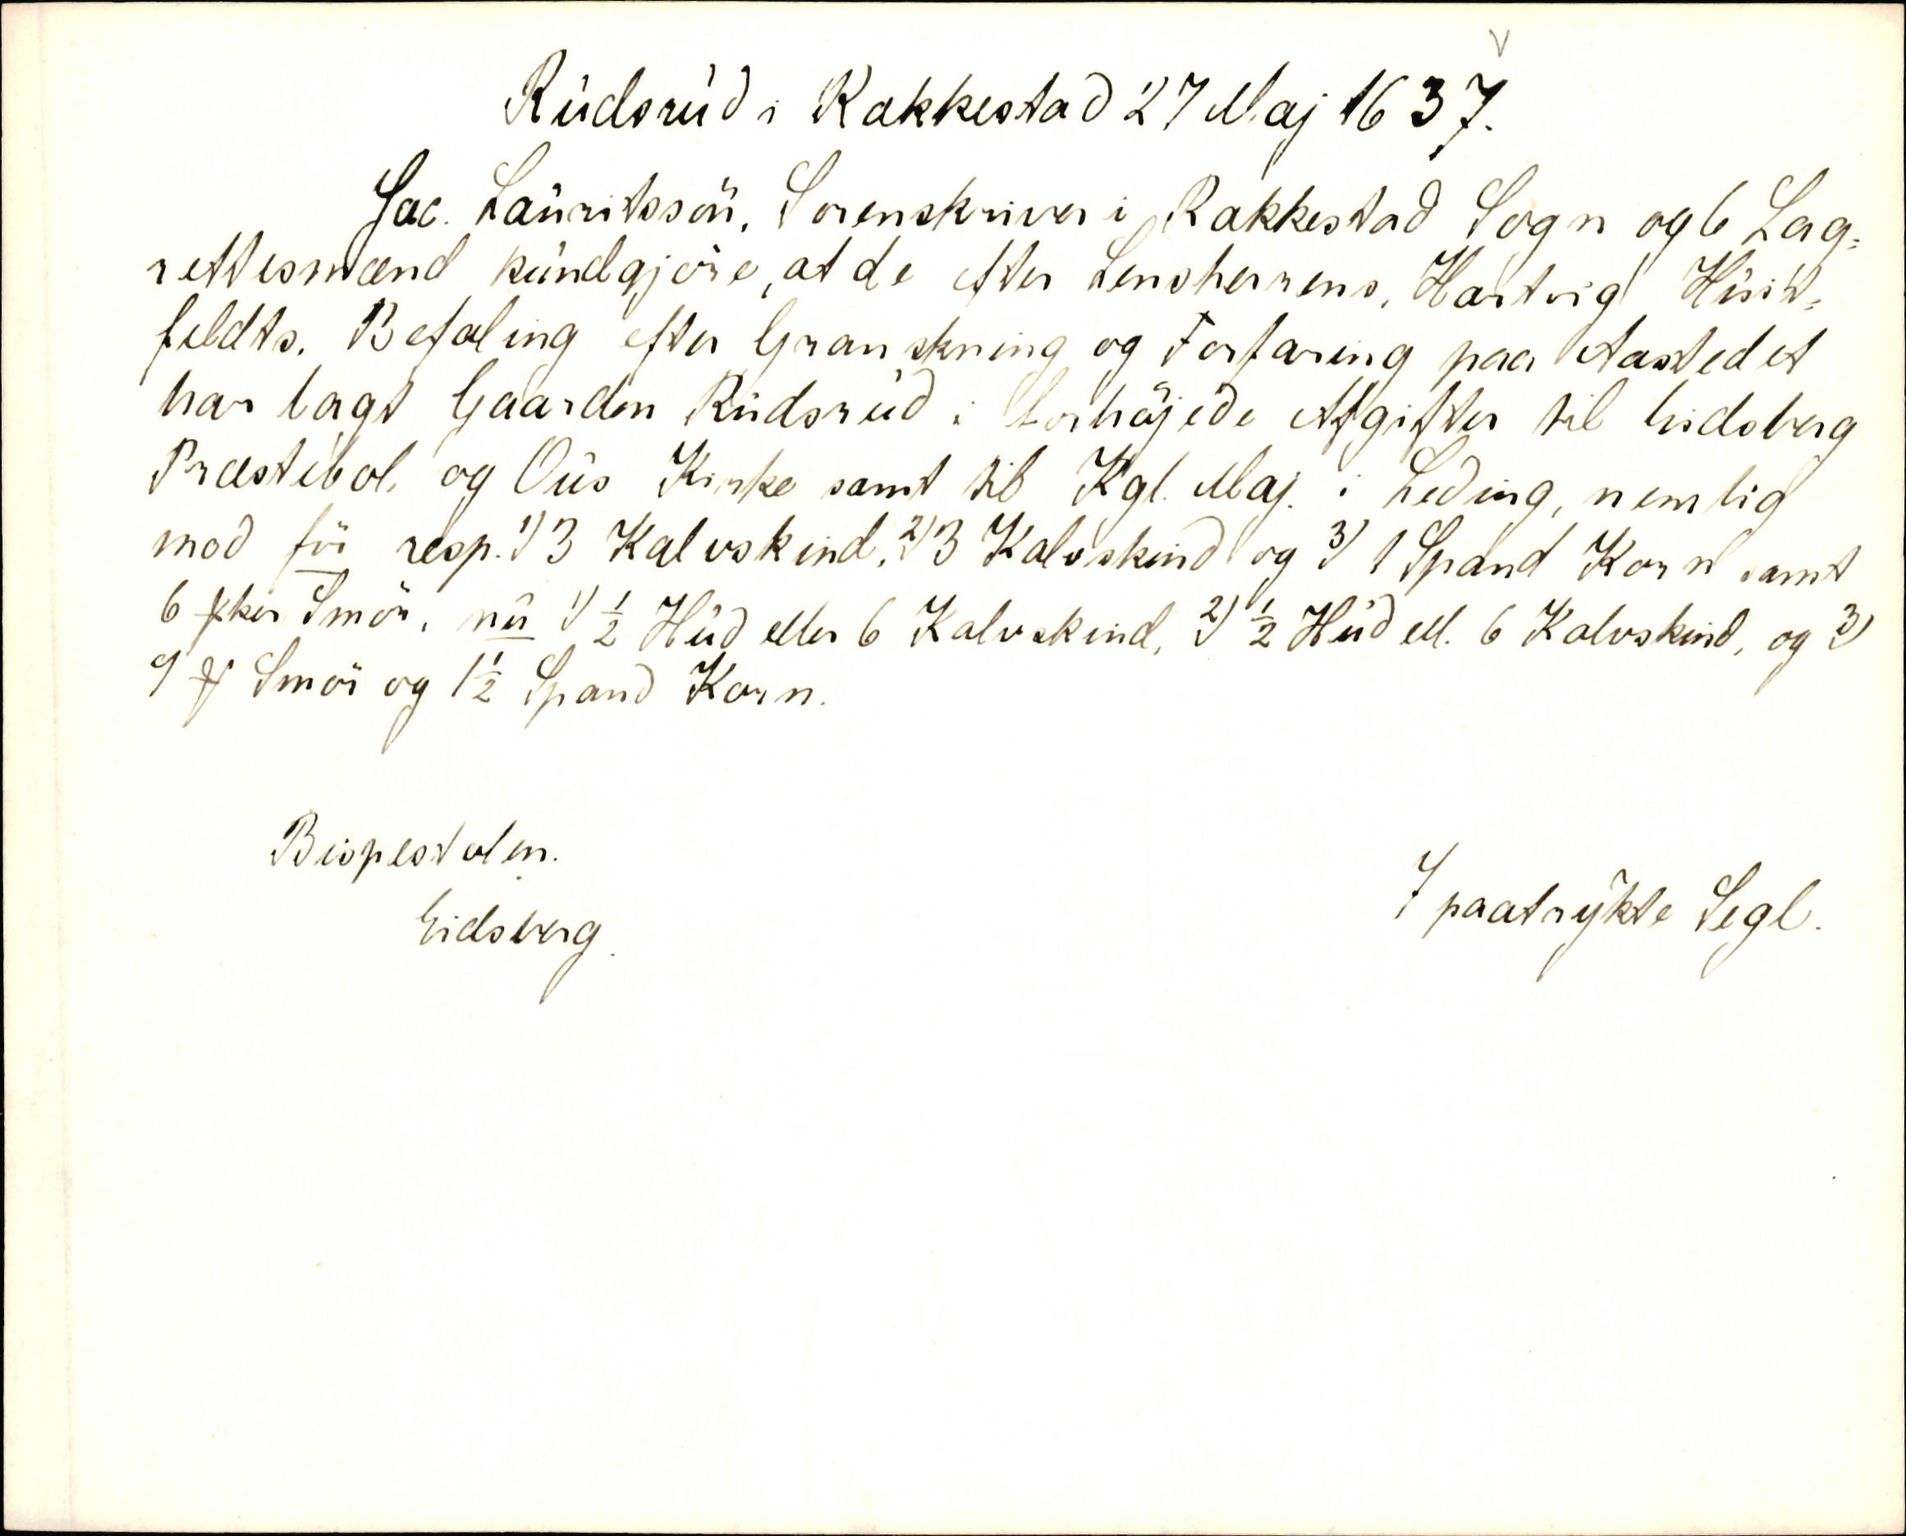 Rudsrud i Rakkestad 27 Maj 1637.
Jac. Lauritssön, Sorenskriver i Rakkestad Sogn og 6 Lag-
rettesmænd kundgjöre, at de efter Lensherrens, Hartvig Huit-
feldts, Befaling efter Granskning og Forfaring paa Aastedet
har lagt Gaarden Rudsrud i forhöjede Afgifter til Eidsberg
Præstebol, og Ous Kirke samt til Kgl. Maj. i Leding, nemlig
mod för resp. 1) 3 Kalvskind, 2) 3 Kalvskind og 3) 1 Spand Korn samt
6 ℔ker Smör, nu 1) ½ Hud eller 6 Kalvskind, 2) ½ Hud ell. 6 Kalvskind, og 3)
9 ℔ Smör og 1½ Spand Korn.
Bispestolen.
Eidsberg.
7 paatrykte Segl.